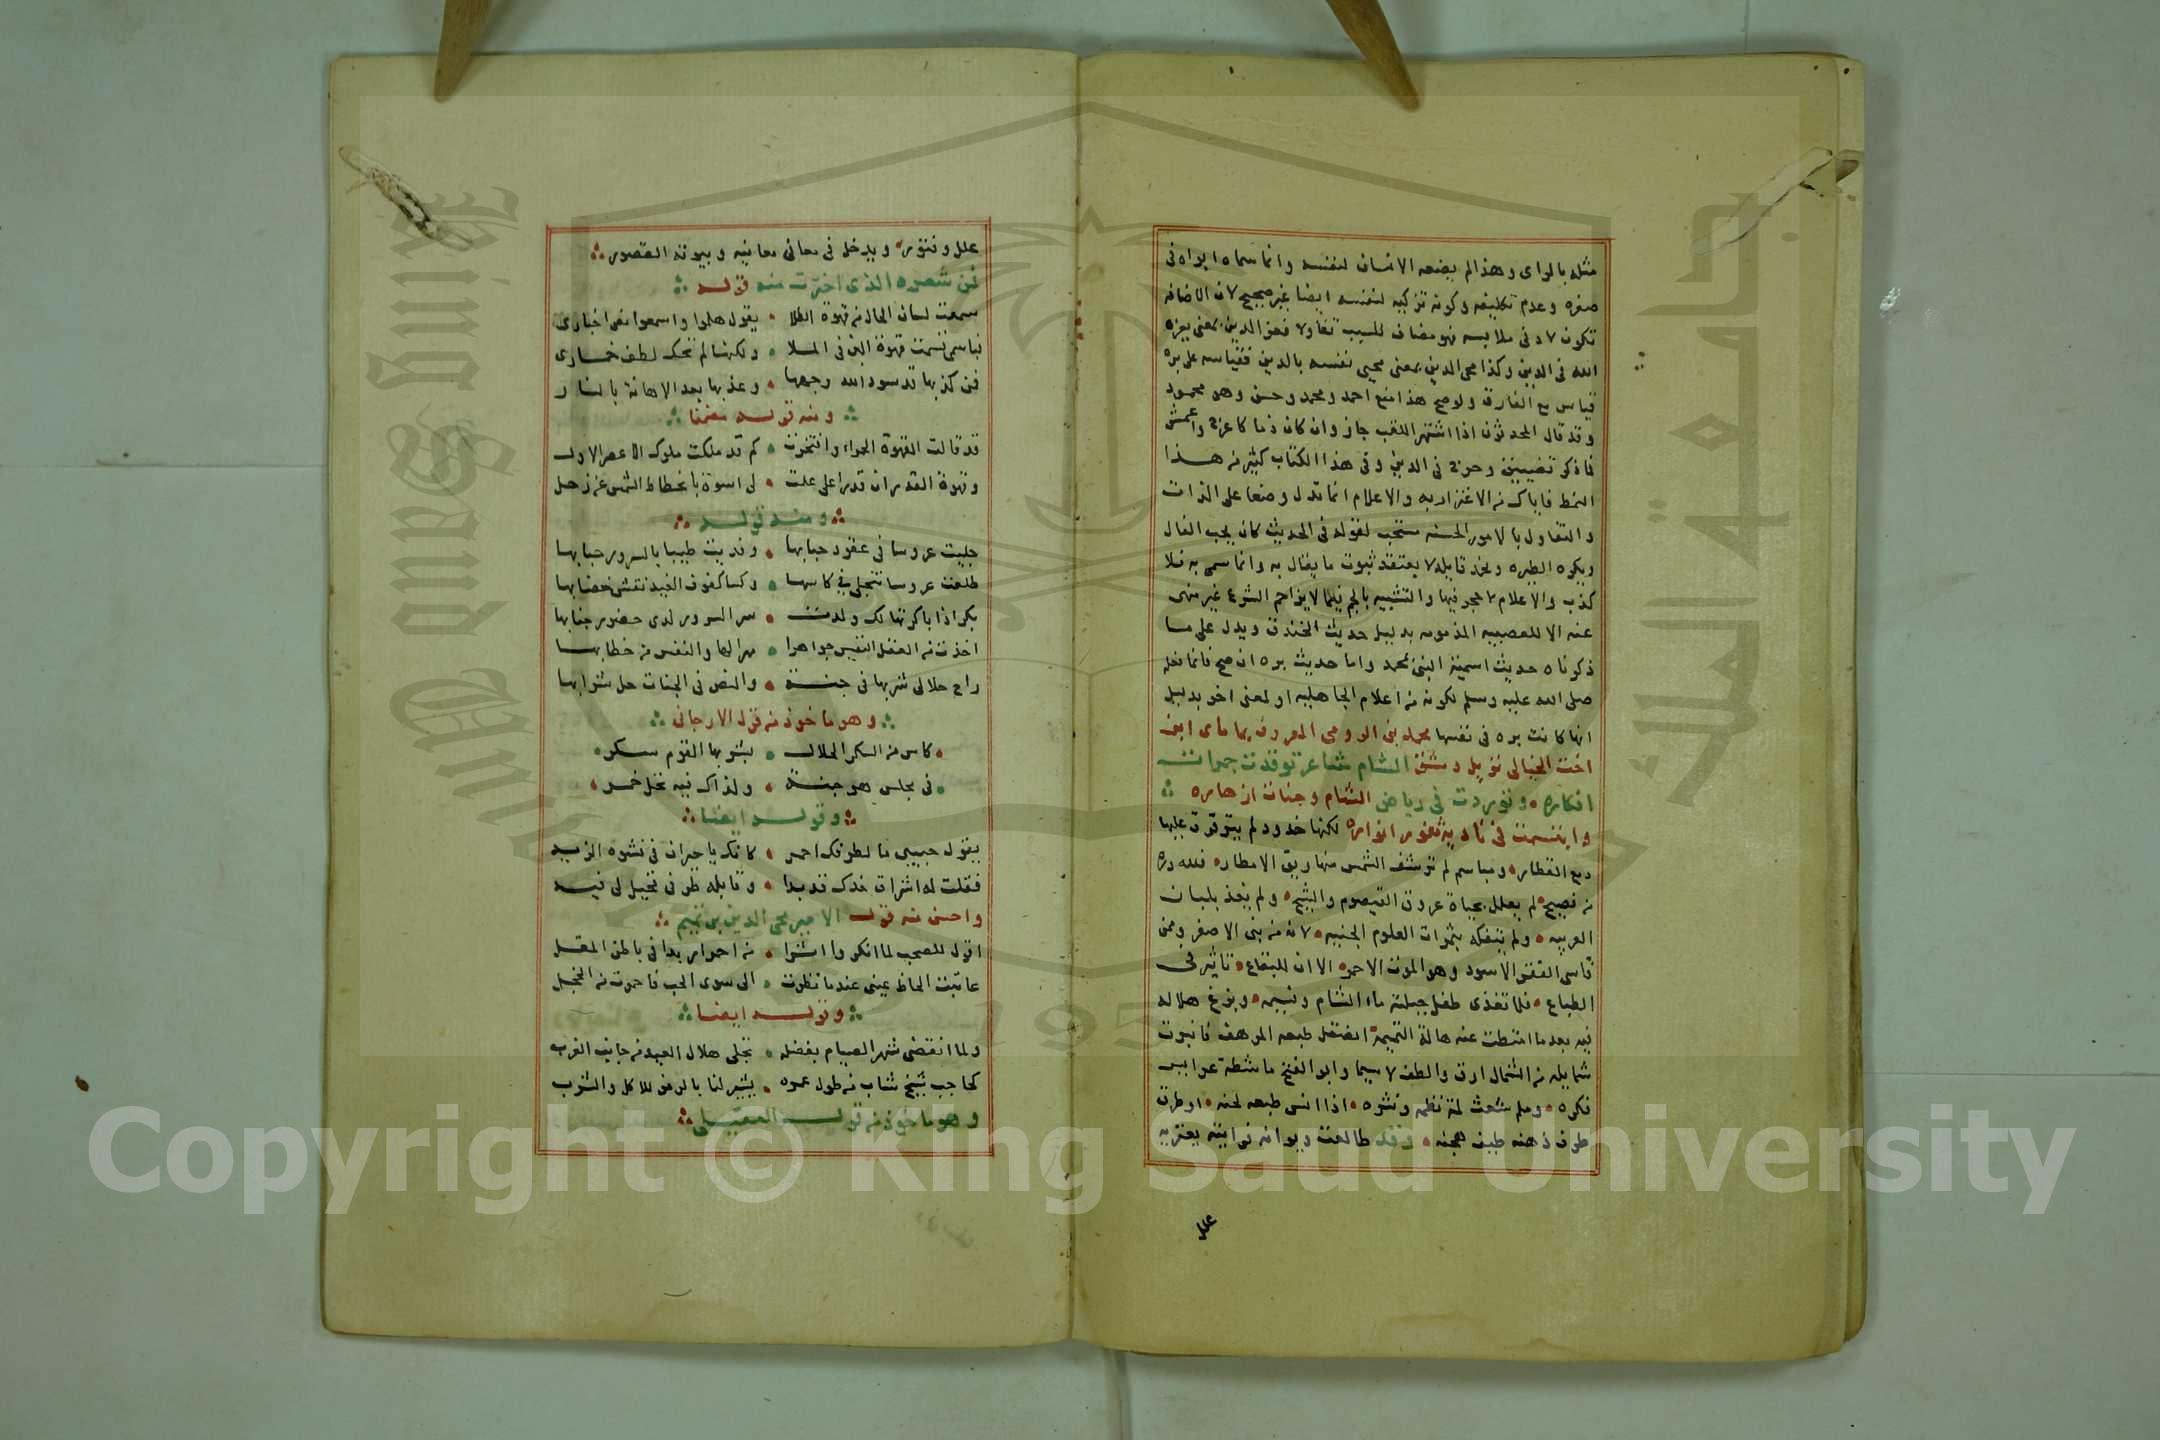 مثله بالراى وهذا لم يضعه الانسان لنفسه وانما سماه ابواه فى
صغره وعدم تكليفه وكونه تزكيه لنفسه ايضا غير صحيح لان الاضافه
تكون لادنى ملابسه فهو مضاف للسبب تفاولا فعز الدين بمعنى يعزه
الله فى الدين وكذا محى الدين بمعنى محيى نفسه بالدين فقياسه على بره
قياس مع الفارق ولو صح هذا منع احمد ومحمد وحسن وهو محمود
وقد قال المحدثون اذا اشتهر اللقب جاز وان كان ذما كاعرج واعمش
فما ذكر تضييق وحرج فى الدين وفى هذا الكتاب كثير من هذا
النمط فاياك من الاغترار به والاعلام انما تدل وضعا على الذات
والتفاول بالامور الحسنه مستحب لقوله فى الحديث كان يحب الفال
ويكره الطيره وبخذ قايله لا يعتقد ثبوت ما يقال به وانما سمى به فلا
كذب والاعلام لا حجر فيها والتشبيه بالعجم فيما لا يزاحم الشرع غير منهى
عنه الا للعصبيه المذمومه بدليل حديث الخندق ويدل على ما
ذكرناه حديث اسميته النبى محمد واما حديث بره ان صح فانما فعله
صلى الله عليه وسلم لكونه من اعلام الجاهليه او لمعنى اخر بدليل
انها كانت بره فى نفسها محمد بن الرومى المعروف بماماى ابن
اخت الخيالى نزيل دمشق الشام شاعر توقدت جمرات
افكاره وتوردت فى رياض الشام وجنات ازهاره
وابتسمت فى ناديه ثغور انواره لكنها خدود لم يترقرق عليها
دمع القطار ومباسم لم ترشف الشمس منها ريق الامطار فلله دره
من فصيح لم يعلل بحياة عروق القيصوم والشيح ولم يغذ بلبان
العربيه ولم يتفكه بثمرات العلوم الجنيه لانه من بنى الاصفر وممن
قاسى الفتق الاسود وهو الموت الاحمر الا ان للبقاع تاثير فى
الطباع فلما تغذى طفل جبلته بماء الشام ونسيمه وبزغ هلاله
فيه بعد ما امتطت عنه هالة التميمه انصقل طبعه المرهف فانبرت
شمايله من الشمال ارق والطف لا سيما وابو الفتح ماشطة عرايس
فكره وململم شعث لمة نظمه ونثره اذا انس طبعه لحنه اوطرق
طرف ذهنه طيف هجنه وقد طالعت ديوانه فرايته يعتريه
علل
علل وفتور ويدخل فى معانى معانيه وبيوته القصور
فمن شعره الذى اخترت منه قوله
سمعت لسان الحال من قهوة الطلا يقول هلموا واسمعوا نص اخبارى
فباسمى تسمت قهوة البن فى الملا ولكنها لم تحك لطف خمارى
فمن كذبها قد سود الله وجهها وعذبها بعد الاهانة بالنار
ومنه قوله مضمنا
قد قالت القهوة الحمراء وافتخرت كم قد ملكت ملوك الاعصر الاول
وقهوة القدر ان قدرا على علت لى اسوة بانحطاط الشمس عن زحل
ومنه قوله
جليت عروسا فى عقود حبابها وفديت طيبا بالسرور حبابها
طلعت عروسا تنجلى فى كاسها وكسا كفوف الغيد نقش خضابها
بكر اذا باكرتها لك ولدت سر السرور لدى حضور جنابها
اخذت من العقل النفيس جواهرا مهرا لها والنفس من خطابها
راح حلالى شربها فى جنة والنص فى الجنات حل شرابها
وهو ماخوذ من قول الارجانى
كاس من السكر الحلال بشربها القوم سكر
فى مجلس هو جنة ولذاك فيه تحل خمر
وقوله ايضا
يقول حبيبى ما لطرفك احمر كانك يا حيران فى نشوه الزيد
فقلت له اشراق خدك قد بدا وقابله طرفى تخيل لى فيه
واحسن منه قول الامير محى الدين بن تميم
اقول للصحب لما انكروا اثرا من احمرار بدا فى باطن المقل
عاتبت الحاظ عينى عندما نظرت الى سوى الحب فاحمرت من الخجل
وقوله ايضا
ولما انقضى شهر الصيام بفضله تجلى هلال العيد من جانب الغرب
كحاجب شيخ شاب من طول عمره يشير لنا بالرمز للاكل والشرب
وهو ماخوذ من قول العقيلى
Copyright © King Saud University
1957